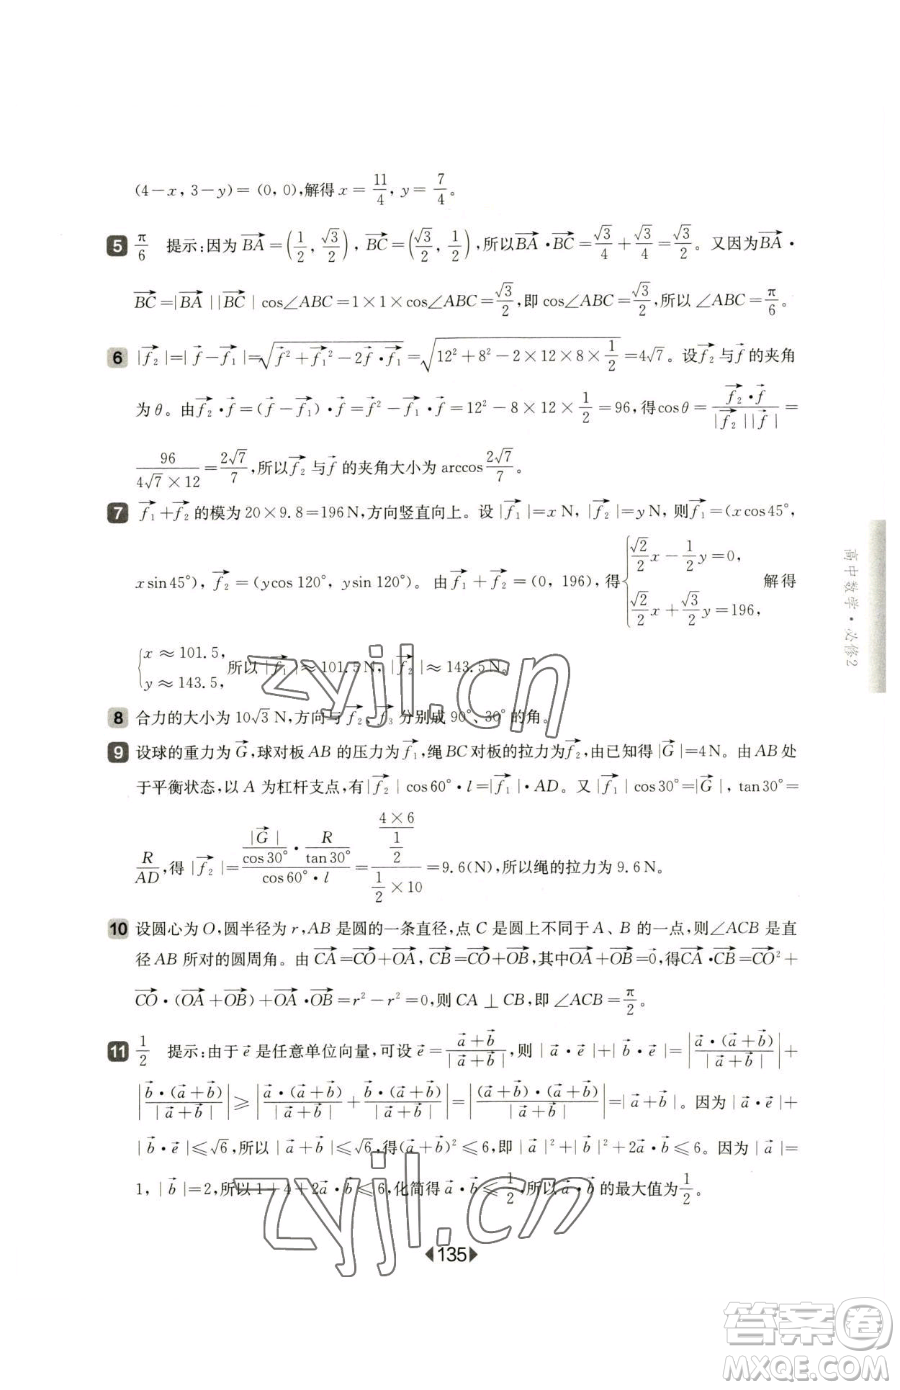 (4－x, 3－y)＝(0, 0),解得 x＝11/4, y＝7/4。
5 π/6 提示:因为\overrightarrow{BA}＝(1/2, √3/2), \overrightarrow{BC}＝(√3/2, 1/2),所以\overrightarrow{BA}·\overrightarrow{BC}＝√3/4＋√3/4＝√3/2。又因为\overrightarrow{BA}·
\overrightarrow{BC}＝|\overrightarrow{BA}||\overrightarrow{BC}|cos∠ABC＝1×1×cos∠ABC＝√3/2,即 cos∠ABC＝√3/2,所以 ∠ABC＝π/6。
6 |\vec{f_2}|＝|\vec{f}－\vec{f_1}|＝√(\vec{f}²＋\vec{f_1}²－2\vec{f}·\vec{f_1})＝√(12²＋8²－2×12×8×1/2)＝4√7。设\vec{f_2}与\vec{f}的夹角
为θ。由\vec{f_2}·\vec{f}＝(\vec{f}－\vec{f_1})·\vec{f}＝\vec{f}²－\vec{f_1}·\vec{f}＝12²－8×12×1/2＝96,得cosθ＝(\vec{f_2}·\vec{f})/(|\vec{f_2}||\vec{f}|)＝
96/(4√7×12)＝2√7/7,所以\vec{f_2}与\vec{f}的夹角大小为 arccos 2√7/7。
7 \vec{f_1}＋\vec{f_2}的模为 20×9.8＝196 N,方向竖直向上。设 |\vec{f_1}|＝x N, |\vec{f_2}|＝y N, 则\vec{f_1}＝(x cos 45°,
x sin 45°), \vec{f_2}＝(y cos 120°, y sin 120°)。由\vec{f_1}＋\vec{f_2}＝(0, 196),得{√2/2 x－1/2 y＝0, √2/2 x＋√3/2 y＝196, 解得
{x≈101.5, y≈143.5, 所以 |\vec{f_1}|≈101.5 N, |\vec{f_2}|≈143.5 N。
8 合力的大小为 10√3 N,方向与\vec{f_2}、\vec{f_3}分别成 90°、30°的角。
9 设球的重力为\vec{G},球对板 AB 的压力为\vec{f_1},绳 BC 对板的拉力为\vec{f_2},由已知得 |\vec{G}|＝4 N。由 AB 处
于平衡状态,以 A 为杠杆支点,有|\vec{f_2}|cos 60°·l＝|\vec{f_1}|·AD。又 |\vec{f_1}|cos 30°＝|\vec{G}|, tan 30°＝
R/AD,得 |\vec{f_2}|＝(|\vec{G}|/cos 30°·R/tan 30°)/(cos 60°·l)＝((4×6)/(1/2))/(1/2×10)＝9.6(N),所以绳的拉力为 9.6 N。
10 设圆心为 O,圆半径为 r, AB 是圆的一条直径,点 C 是圆上不同于 A、B 的一点,则∠ACB 是直
径 AB 所对的圆周角。由 \overrightarrow{CA}＝\overrightarrow{CO}＋\overrightarrow{OA}, \overrightarrow{CB}＝\overrightarrow{CO}＋\overrightarrow{OB},其中\overrightarrow{OA}＋\overrightarrow{OB}＝\vec{0},得\overrightarrow{CA}·\overrightarrow{CB}＝\overrightarrow{CO}²＋
\overrightarrow{CO}·(\overrightarrow{OA}＋\overrightarrow{OB})＋\overrightarrow{OA}·\overrightarrow{OB}＝r²－r²＝0,则 CA⊥CB,即 ∠ACB＝π/2。
11 1/2 提示:由于\vec{e}是任意单位向量,可设\vec{e}＝(\vec{a}＋\vec{b})/|\vec{a}＋\vec{b}|,则 |\vec{a}·\vec{e}|＋|\vec{b}·\vec{e}|＝|\vec{a}·(\vec{a}＋\vec{b})/|\vec{a}＋\vec{b}||＋
|\vec{b}·(\vec{a}＋\vec{b})/|\vec{a}＋\vec{b}||≥|\vec{a}·(\vec{a}＋\vec{b})/|\vec{a}＋\vec{b}|＋\vec{b}·(\vec{a}＋\vec{b})/|\vec{a}＋\vec{b}||＝|(\vec{a}＋\vec{b})·(\vec{a}＋\vec{b})/|\vec{a}＋\vec{b}||＝|\vec{a}＋\vec{b}|。因为 |\vec{a}·\vec{e}|＋
|\vec{b}·\vec{e}|≤√6,所以 |\vec{a}＋\vec{b}|≤√6,得(\vec{a}＋\vec{b})²≤6,即 |\vec{a}|²＋|\vec{b}|²＋2\vec{a}·\vec{b}≤6。因为 |\vec{a}|＝
1, |\vec{b}|＝2,所以 1＋4＋2\vec{a}·\vec{b}≤6,化简得\vec{a}·\vec{b}≤1/2,所以\vec{a}·\vec{b}的最大值为1/2。
135
高中数学·必修2
zyjl.cn
zyjl.cn
答案圈
MXQE.COM